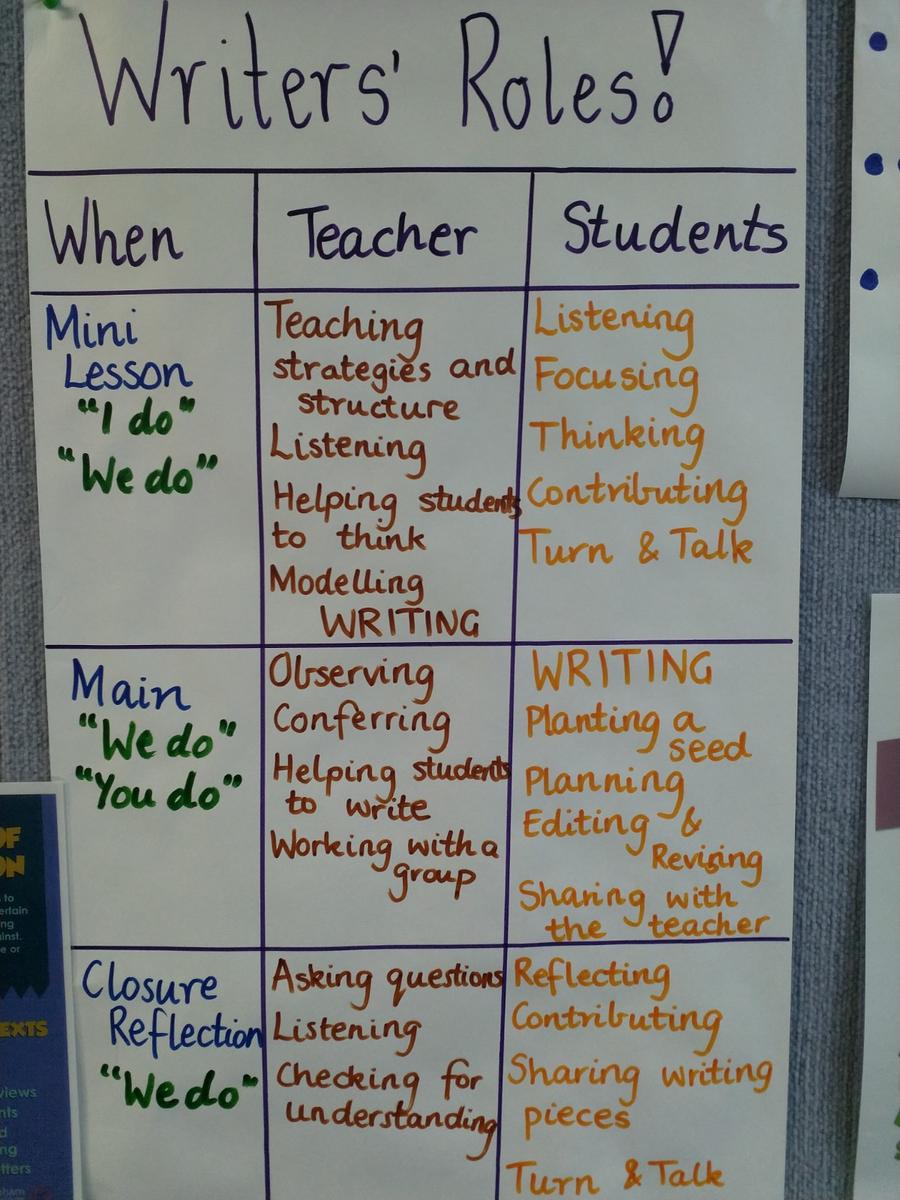 Writers' Roles!
When Teacher Students
Mini
Lesson
"I do"
"We do"
Teaching
strategies and
structure
Listening
Helping students
to think
Modelling
WRITING
Listening
Focusing
Thinking
Contributing
Turn & Talk
Main
"We do"
"You do"
Observing
Conferring
Helping students
to write
Working with a
group
WRITING
Planting a
seed
Planning
Editing &
Revising
Sharing with
the teacher
Closure
Reflection
"We do"
Asking questions
Listening
Checking for
understanding
Reflecting
Contributing
Sharing writing
pieces
Turn & Talk
OF
to
or